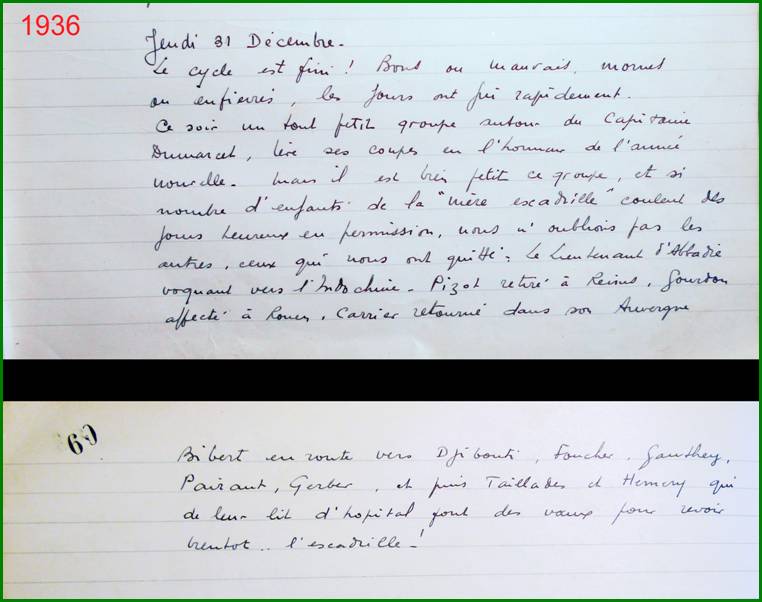 1936
Jeudi 31 Décembre.
Le cycle est fini ! Bons ou mauvais, mornes
ou enfievrés, les jours ont fui rapidement.
Ce soir un tout petit groupe autour du Capitaine
Dumarcet, lève ses coupes en l'honneur de l'année
nouvelle. Mais il est bien petit ce groupe, et si
nombre d'enfants de la "mère escadrille" coulent des
jours heureux en permission, nous n'oublions pas les
autres, ceux qui nous ont quitté : Le Lieutenant d'Abbadie
voquant vers l'Indochine - Pizot retiré à Reims, Gourdon
affecté à Rouen, Carrier retourné dans son Auvergne
60
Bibert en route vers Djibouti, Foucher, Gauthey,
Pairant, Gerber, et puis Taillades et Hemery qui
de leur lit d'hopital font des vœux pour revoir
bientot.. l'escadrille - !